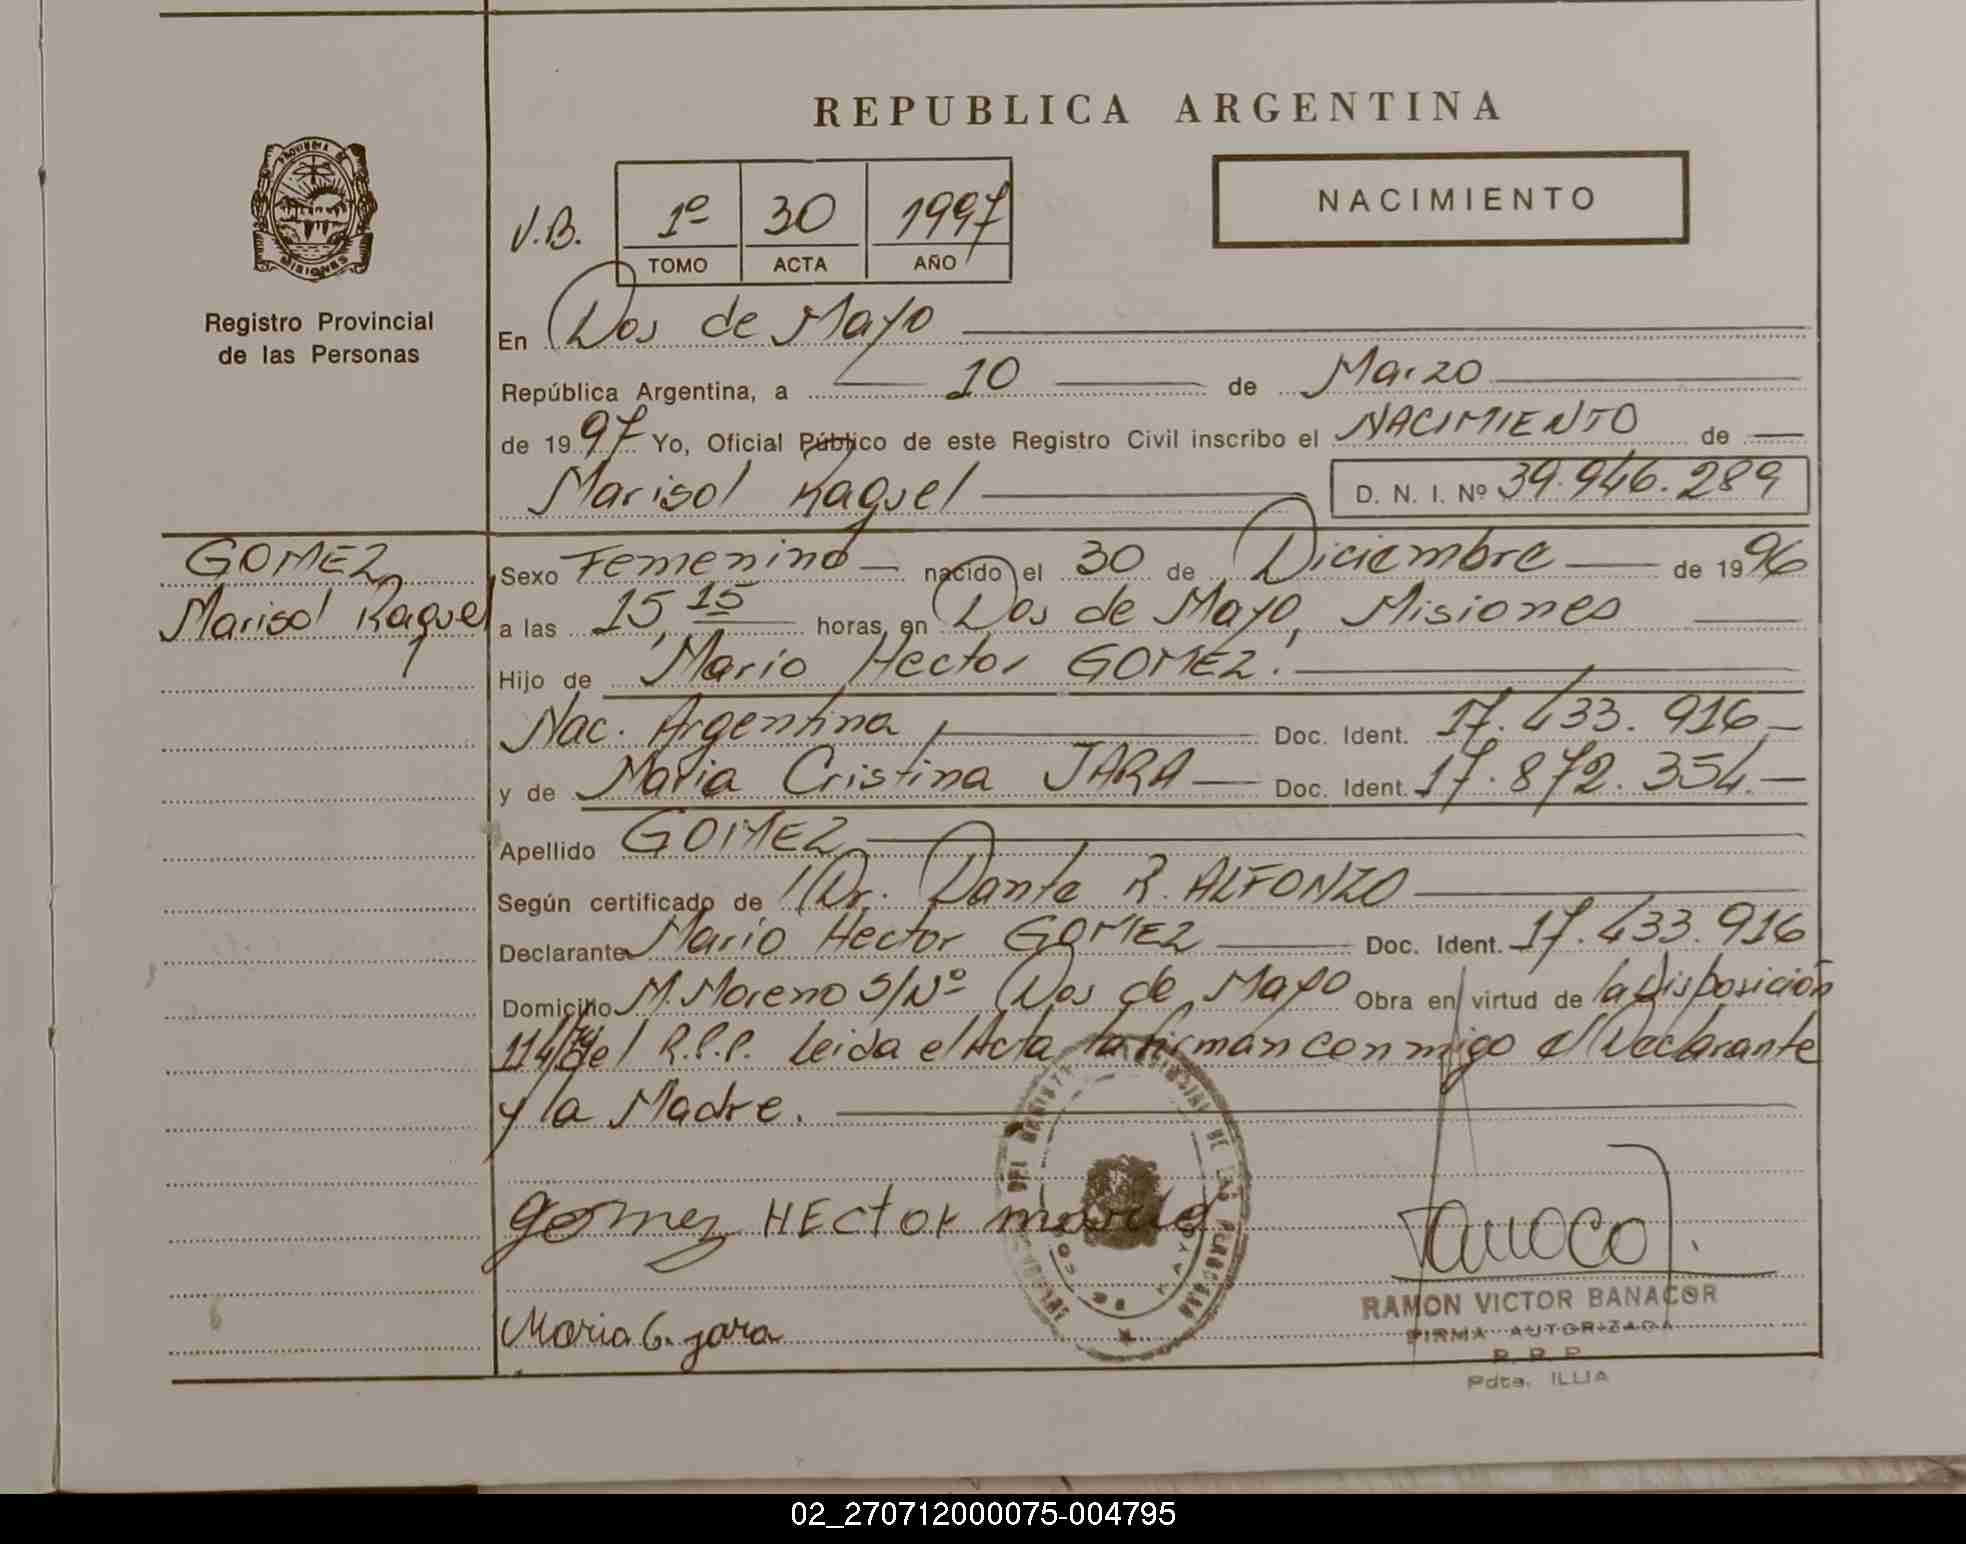 REPUBLICA ARGENTINA
NACIMIENTO
PROVINCIA DE
MISIONES
Registro Provincial
de las Personas
V.B. 1º 30 1997
TOMO ACTA AÑO
En Dos de Mayo
República Argentina, a 10 de Marzo
de 1997 Yo, Oficial Público de este Registro Civil inscribo el NACIMIENTO de
Marisol Raquel D. N. I. Nº 39.946.289
GOMEZ
Marisol Raquel
Sexo Femenino nacido el 30 de Diciembre de 1996
a las 15,15 horas, en Dos de Mayo, Misiones
Hijo de Mario Hector GOMEZ.
Nac. Argentina, Doc. Ident. 17.433.916
y de Maria Cristina JARA Doc. Ident. 17.872.354.
Apellido GOMEZ
Según certificado de Dr. Dante R. ALFONZO
Declarante Mario Hector GOMEZ Doc. Ident. 17.433.916
Domicilio M. Moreno S/Nº Dos de Mayo Obra en virtud de la Disposición
114/74 del R.P.P. leida el Acta la firman conmigo el Declarante
y la Madre.
gomez HEctor mario
Maria C. jara
RAMON VICTOR BANACOR
FIRMA AUTORIZADA
R. P. P.
Pdte. ILLIA
02_270712000075-004795